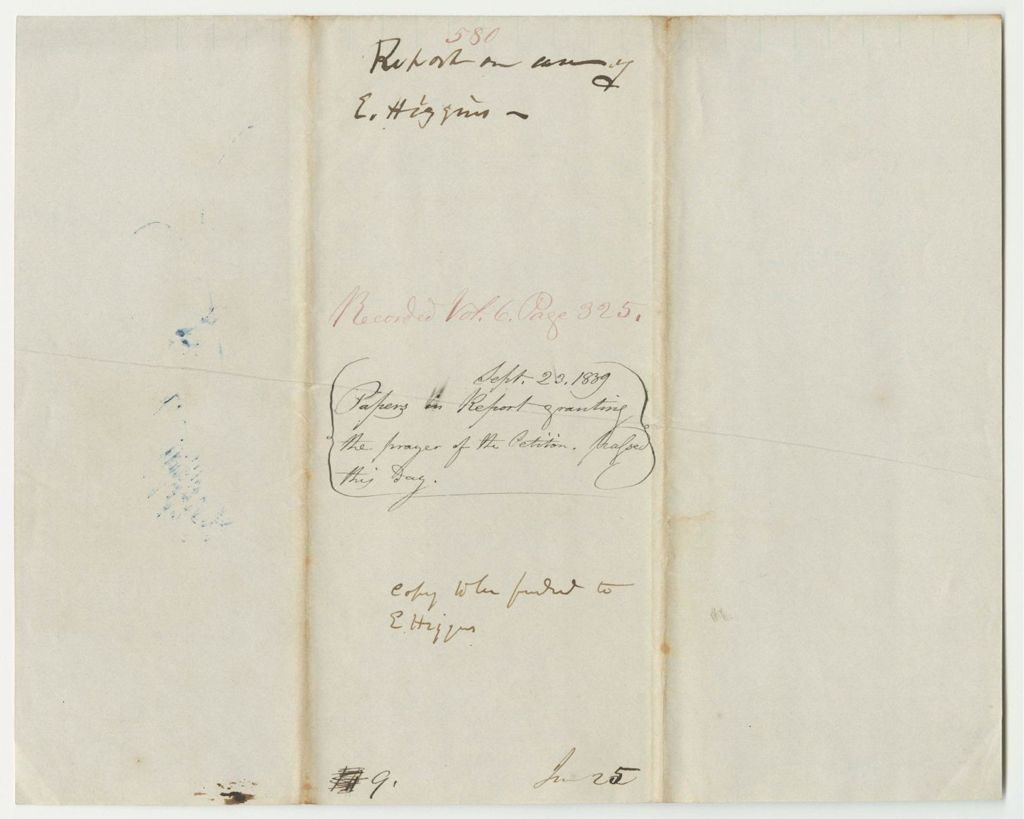 580
Report on case of
E. Higgins -
Recorded Vol. 6. Page 325.
Sept. 23. 1839
Papers in Report granting
the prayer of the Petition. Passed
this Day.
Copy to be furd to
E Higgins
9.
25